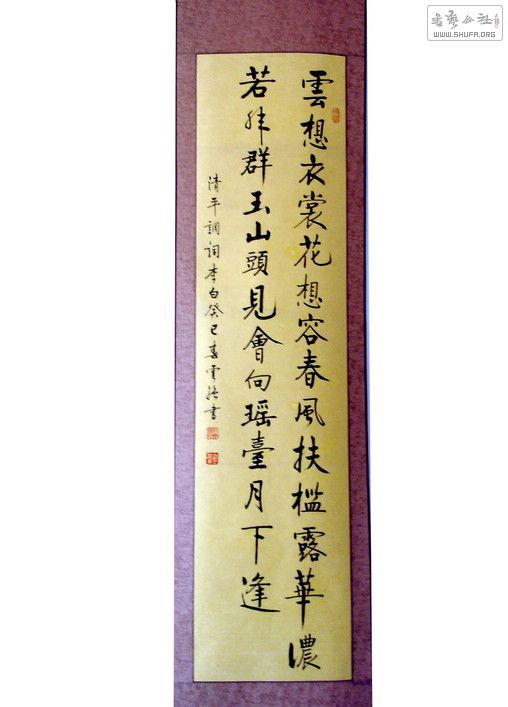 雲想衣裳花想容春風扶檻露華濃
若非群玉山頭見會向瑶臺月下逢
清平調詞李白癸巳春雲書
書藝公社
WWW.SHUFA.ORG